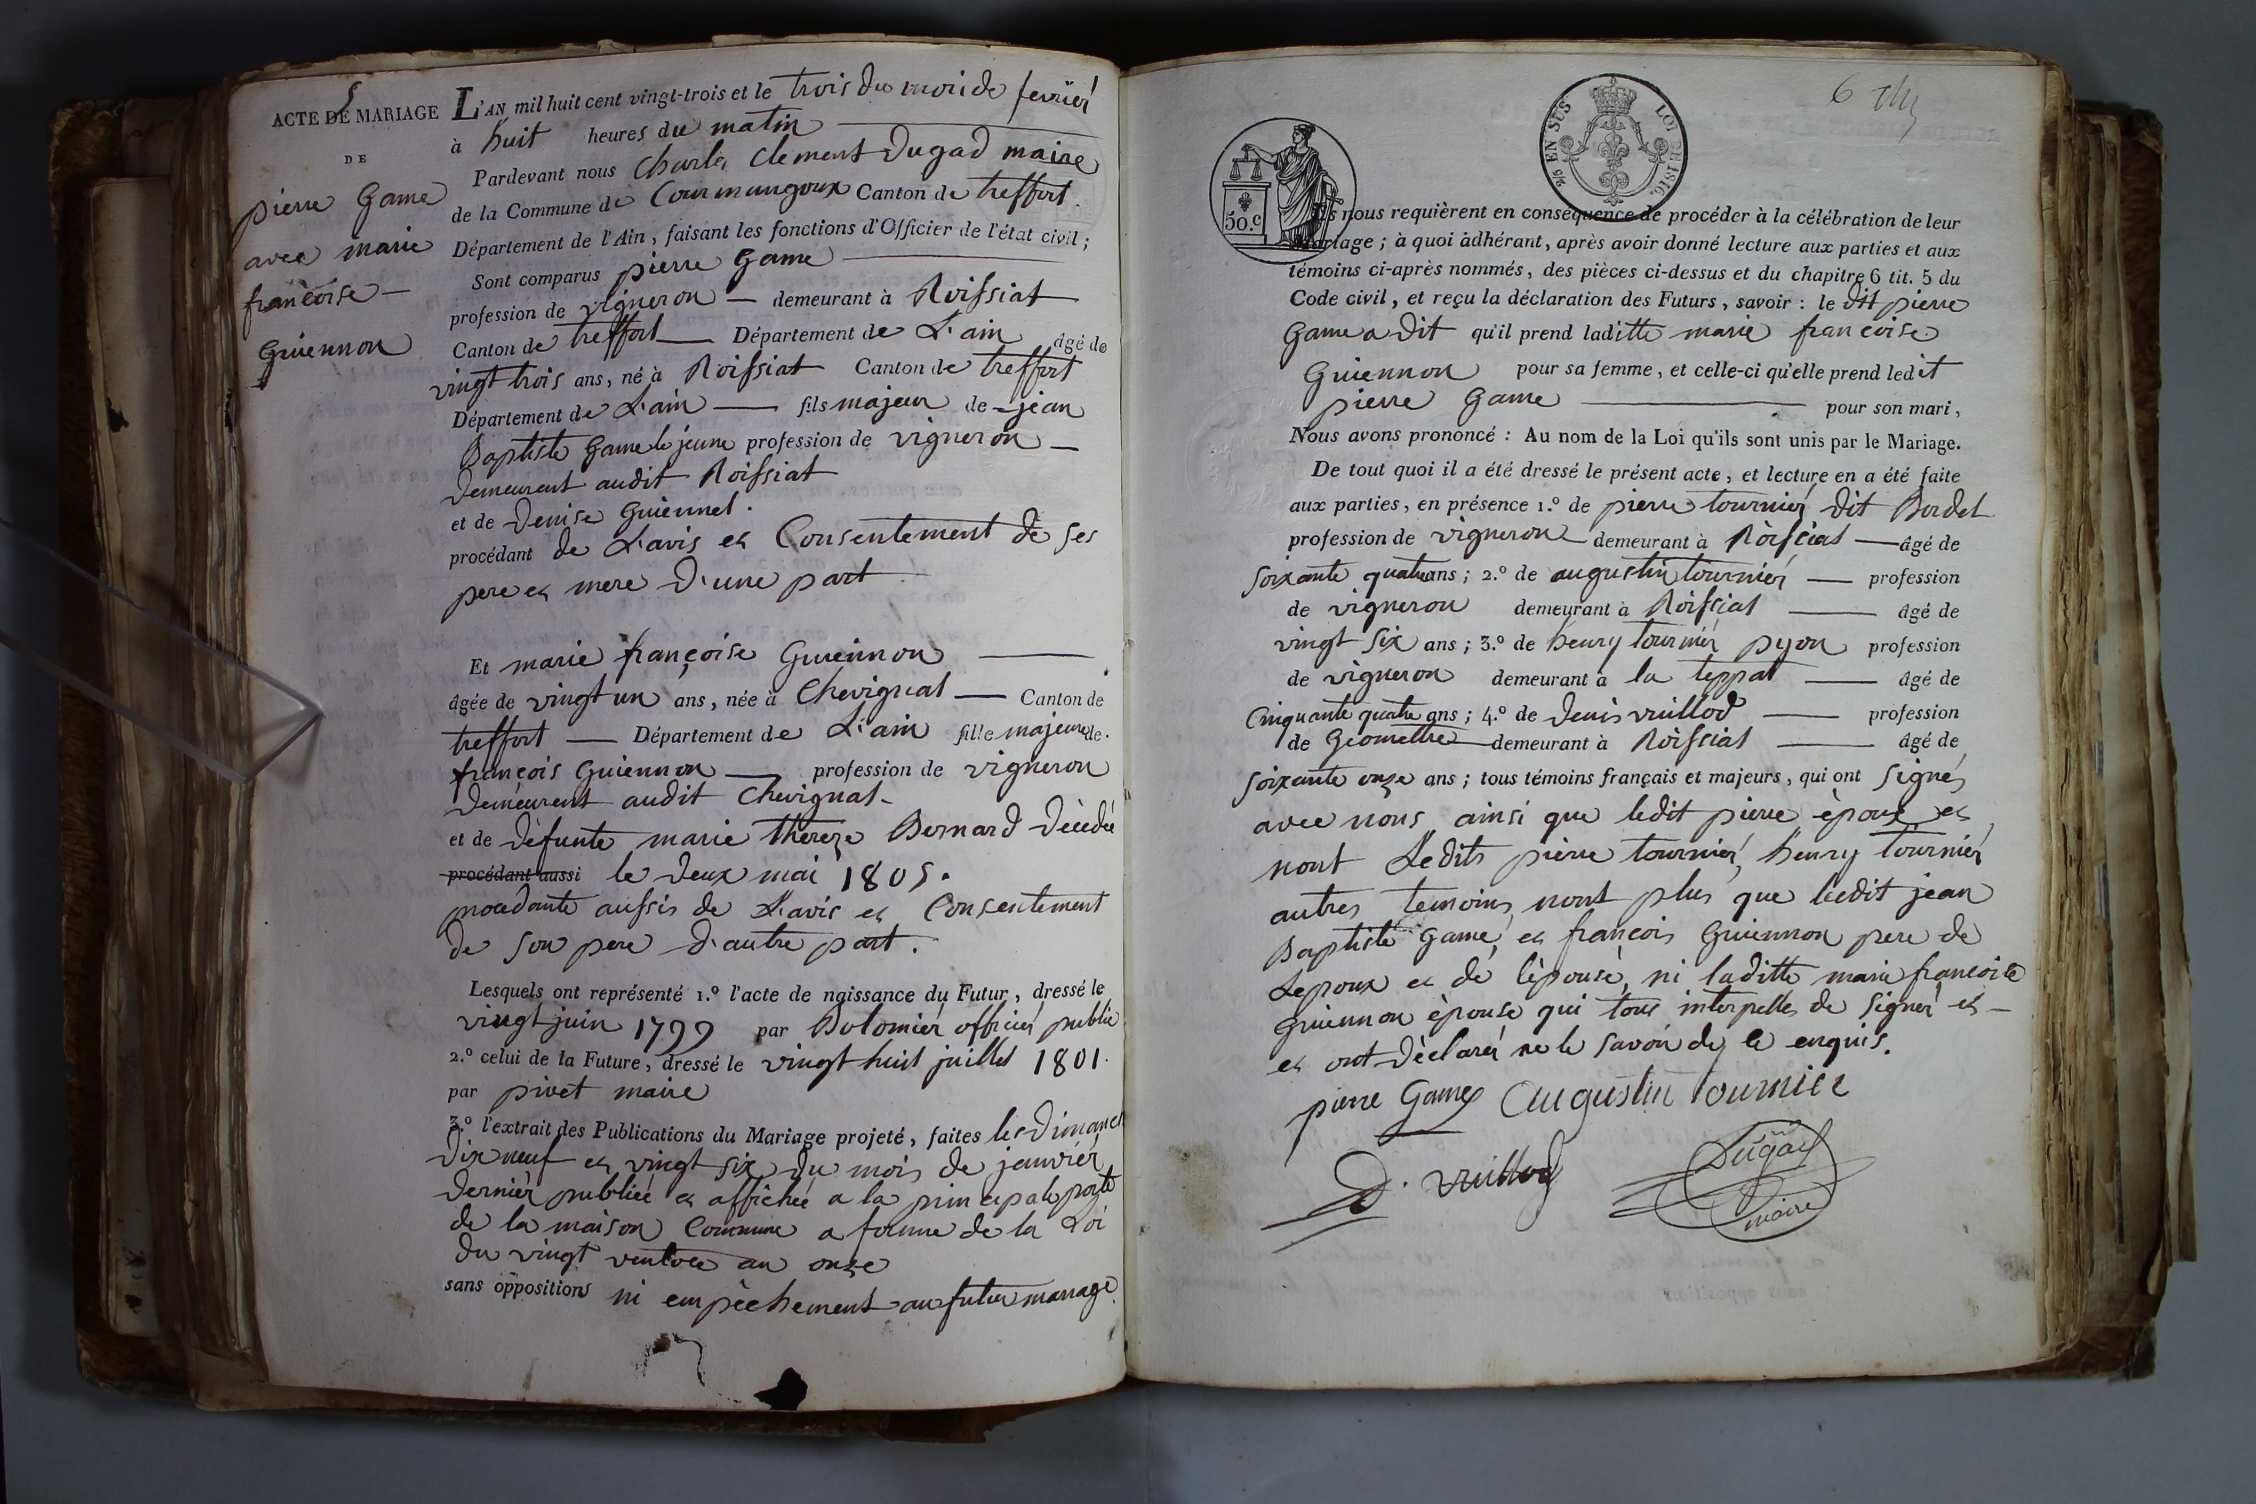 5
ACTE DE MARIAGE
DE
pierre Game
avec marie
françoise
Guiennon
L'AN mil huit cent vingt-trois et le trois du mois de fevrier
à huit heures du matin
Pardevant nous Charles Clement Dugad maire
de la Commune de Courmangoux Canton de treffort
Département de l'Ain, faisant les fonctions d'Officier de l'état civil;
Sont comparus pierre Game
profession de vigneron demeurant à Roissiat
Canton de treffort Département de L'ain âgé de
vingt trois ans, né à Roissiat Canton de treffort
Département de L'ain fils majeur de jean
Baptiste Game le jeune profession de vigneron
demeurent audit Roissiat
et de Denise Guiennet.
procédant de L'avis et Consentement de ses
pere et mere d'une part
Et marie françoise Guiennon
âgée de vingt un ans, née à Chevignat Canton de
treffort Département de L'ain fille majeure de
françois Guiennon profession de vigneron
demeurent audit Chevignat
et de défunte marie thereze Bernard décédée
procédant aussi le deux mai 1805.
procedante aussis de L'avis et Consentement
de son pere d'autre part.
Lesquels ont représenté 1.º l'acte de naissance du Futur, dressé le
vingt juin 1799 par Bolomier officier public
2.º celui de la Future, dressé le vingt huit juillet 1801.
par pivet maire
3.º l'extrait des Publications du Mariage projeté, faites les Dimanch
Dix neuf et vingt six du mois de janvier
dernier publiée et affichée a la principale porte
de la maison Commune a forme de la Loi
du vingt ventose an onze
sans oppositions ni empêchement au futur mariage
6
EN SUS
LOI DE 1816.
50.c
Ils nous requièrent en conséquence de procéder à la célébration de leur
Mariage; à quoi adhérant, après avoir donné lecture aux parties et aux
témoins ci-après nommés, des pièces ci-dessus et du chapitre 6 tit. 5 du
Code civil, et reçu la déclaration des Futurs, savoir: le dit pierre
Game a dit qu'il prend laditte marie francoise
Guiennon pour sa femme, et celle-ci qu'elle prend ledit
pierre Game pour son mari,
Nous avons prononcé: Au nom de la Loi qu'ils sont unis par le Mariage.
De tout quoi il a été dressé le présent acte, et lecture en a été faite
aux parties, en présence 1.º de pierre tournier dit Bordet
profession de vigneron demeurant à Roissiat âgé de
soixante quatre ans; 2.º de augustin tournier profession
de vigneron demeurant à Roissiat âgé de
vingt six ans; 3.º de henry tournier pyon profession
de vigneron demeurant à la teppat âgé de
Cinquante quatre ans; 4.º de Denis vuillod profession
de Géomettre demeurant à Roissiat âgé de
soixante onze ans; tous témoins français et majeurs, qui ont signés
avec nous ainsi que ledit pierre époux et
nont Ledits pierre tournier, henry tournier
autres temoins nont plus que ledit jean
Baptiste Game et françois Guiennon pere de
Lepoux et de lépouse, ni laditte marie francoise
Guiennon épouse qui tous interpellés de signer et
et ont déclaré ne le savoir de ce enquis.
pierre Game Augustin Tournier
D. Vuillod
Dugad
maire